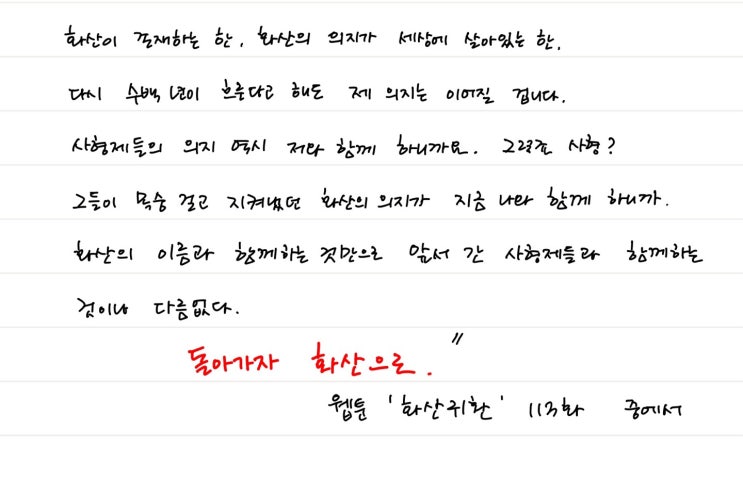 화산이 존재하는 한, 화산의 의지가 세상에 살아있는 한.
다시 수백 년이 흐른다고 해도 제 의지는 이어질 겁니다.
사형제들의 의지 역시 저와 함께 하니까요. 그렇죠 사형?
그들이 목숨 걸고 지켜냈던 화산의 의지가 지금 나와 함께 하니까.
화산의 이름과 함께하는 것만으로 앞서 간 사형제들과 함께하는
것이나 다름없다.
돌아가자 화산으로. "
웹툰 '화산귀환' 113화 중에서